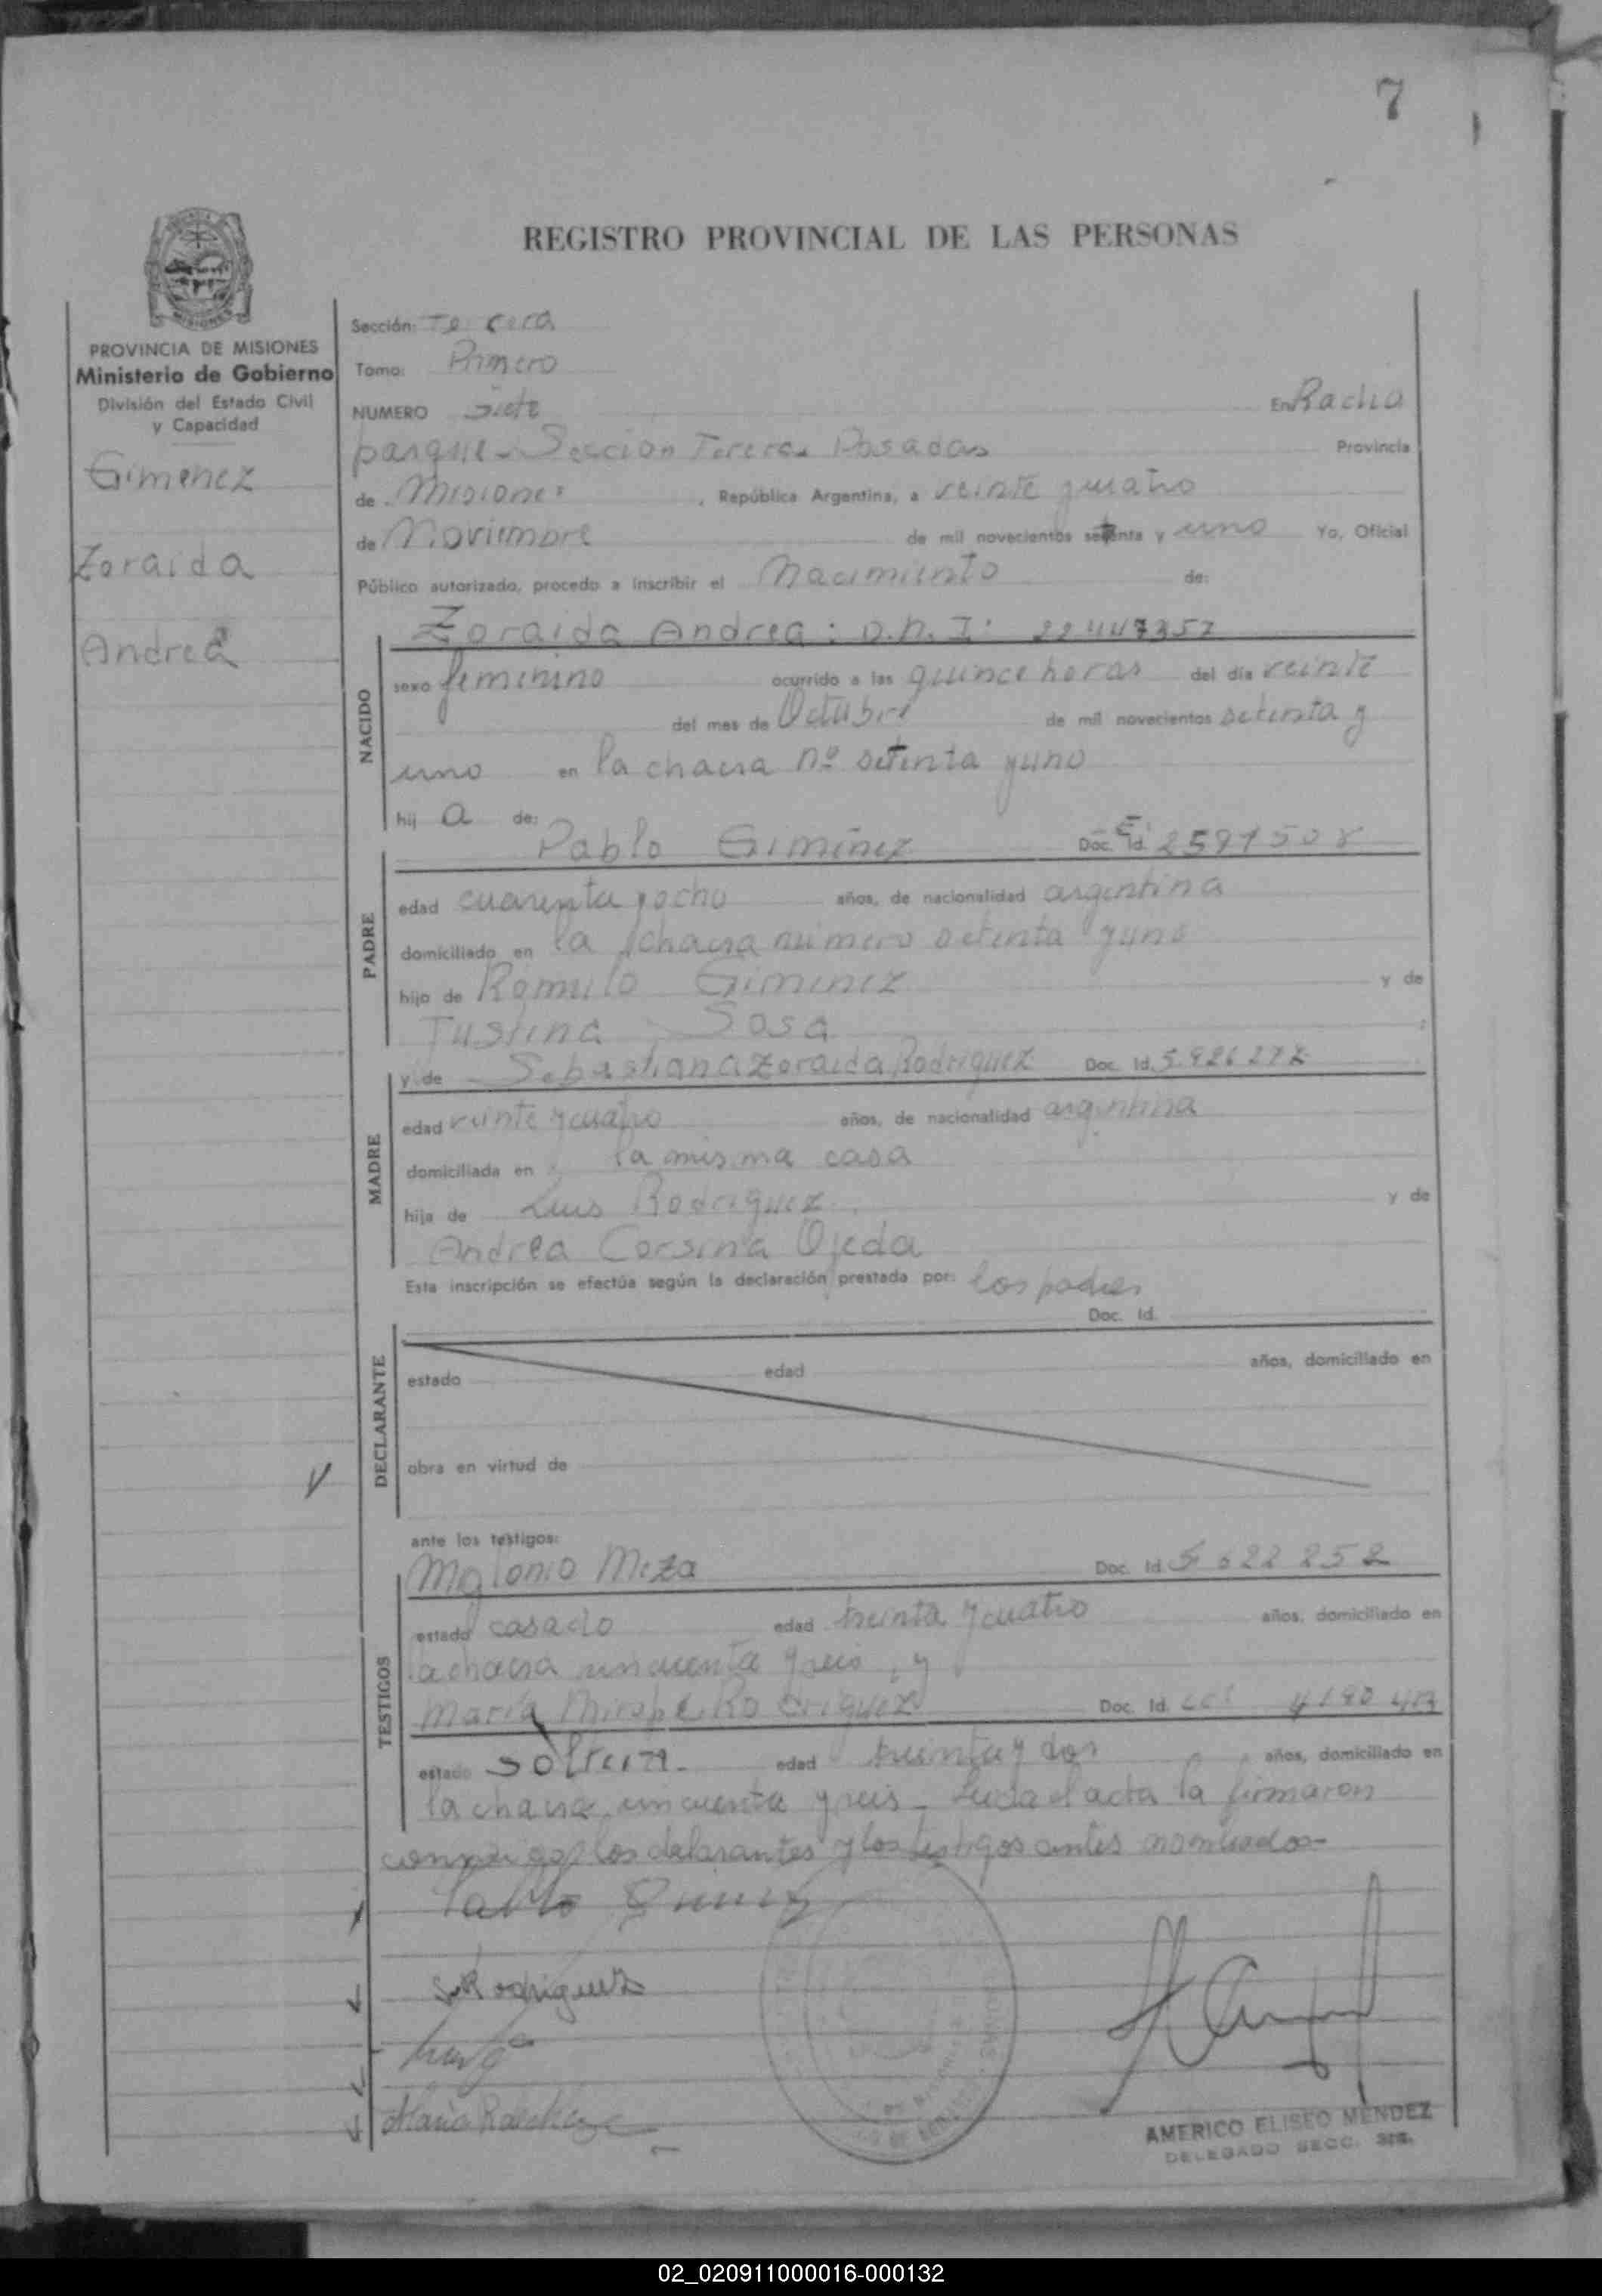 7
REGISTRO PROVINCIAL DE LAS PERSONAS
MISIONES
PROVINCIA DE MISIONES
Ministerio de Gobierno
División del Estado Civil
y Capacidad
Gimenez
Zoraida
Andrea
Sección: Tercera
Tomo: Primero
NUMERO Siete En Racho
parque - Sección Tercera Posadas Provincia
de Misiones , República Argentina, a veinte y cuatro
de Noviembre de mil novecientos setenta y uno Yo, Oficial
Público autorizado, procedo a inscribir el Nacimiento de:
Zoraida Andrea: D.N.I: 22447357
NACIDO
sexo femenino ocurrido a las quince horas del día veinte
del mes de Octubre de mil novecientos setenta y
uno en la chacra nº setenta y uno
hij a de:
Pablo Gimenez Doc. Id.
PADRE
edad cuarenta y ocho años, de nacionalidad argentina
domiciliado en la chacra número setenta y uno
hijo de Romulo Gimenez y de
Justina Sosa
y de Sebastiana Zoraida Rodriguez Doc. Id. 5.926272
MADRE
edad veinte y cuatro años, de nacionalidad argentina
domiciliada en la misma casa
hija de Luis Rodriguez y de
Andrea Corsina Ojeda
Esta inscripción se efectúa según la declaración prestada por: los padres
Doc. Id.
DECLARANTE
estado edad años, domiciliado en
obra en virtud de
ante los testigos:
Meza Doc. Id. 5622252
TESTIGOS
estado casado edad treinta y cuatro años, domiciliado en
la chacra cincuenta y seis, y
María Rodriguez Doc. Id.
estado soltera edad treinta y dos años, domiciliado en
la chacra cincuenta y seis - Leida el acta la firmaron
conmigo los declarantes y los testigos antes nombrados-
S. Rodriguez
AMERICO ELISEO MENDEZ
DELEGADO SECC. 3ra.
02_020911000016-000132